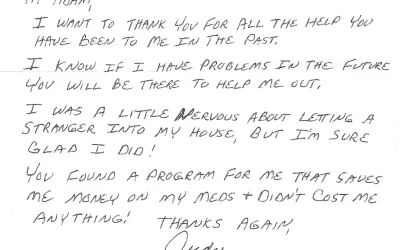 I WANT TO THANK YOU FOR ALL THE HELP YOU
HAVE BEEN TO ME IN THE PAST.
I KNOW IF I HAVE PROBLEMS IN THE FUTURE
YOU WILL BE THERE TO HELP ME OUT.
I WAS A LITTLE NERVOUS ABOUT LETING A
STRANGER INTO MY HOUSE, BUT I'M SURE
GLAD I DID!
YOU FOUND A PROGRAM FOR ME THAT SAVES
ME MONEY ON MY MEDS + DIDN'T COST ME
ANYTHING! THANKS AGAIN,